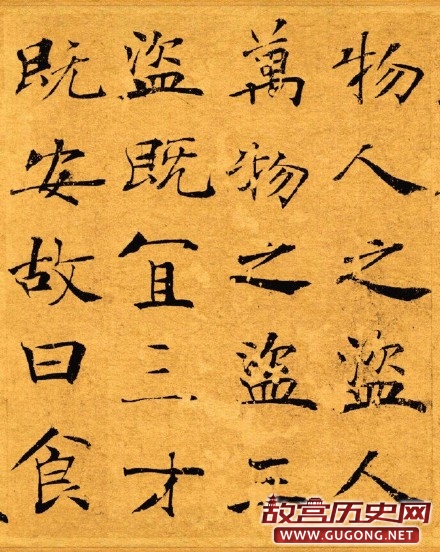 物人之盜人
萬物之盜三
盜既宜三才
既安故曰食
故宫历史网
WWW.GUGONG.NET